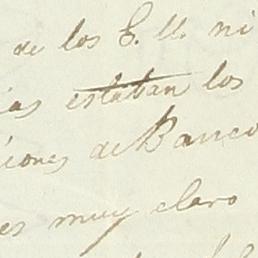 de los E. U. ni
ias estaban los
ciones de Banco
es muy claro